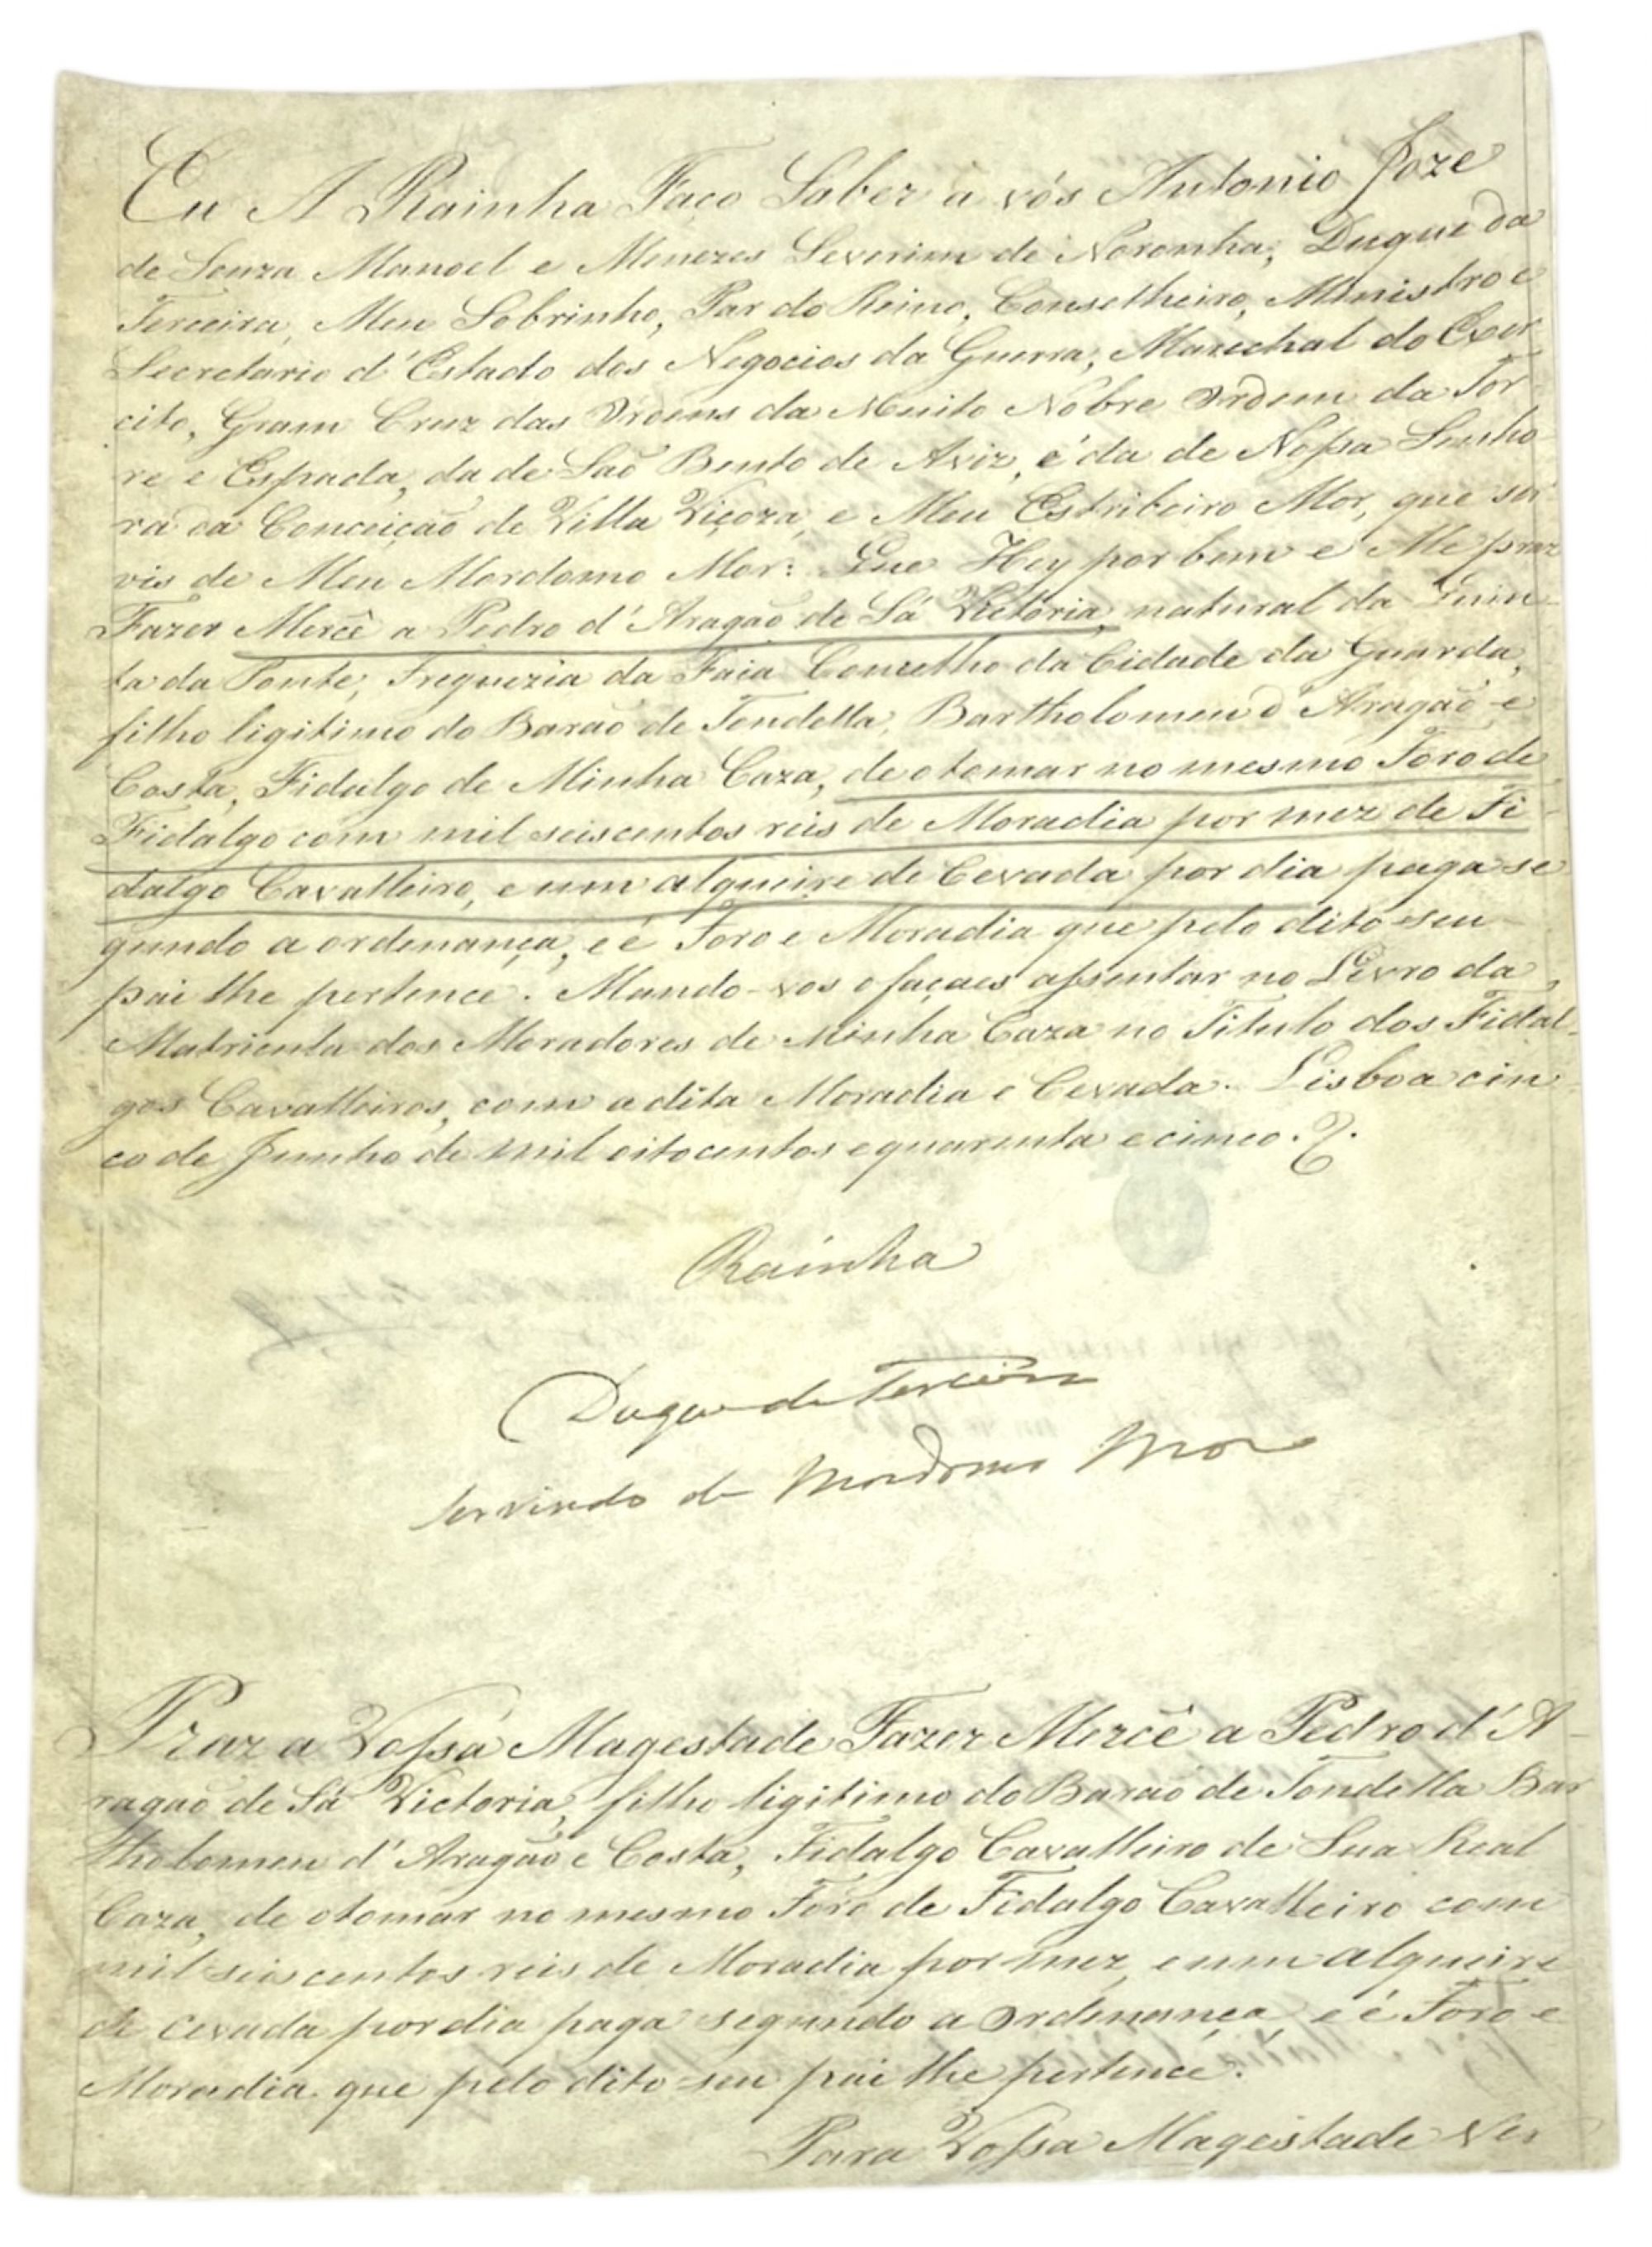 Eu A Rainha Faço Saber a vós Antonio Joze
de Souza Manoel e Menezes Severim de Noronha, Duque da
Terceira, Meu Sobrinho, Par do Reino, Conselheiro, Ministro e
Secretario d'Estado dos Negocios da Guerra, Marechal do Exer-
cito, Gram Cruz das Ordens da Muito Nobre Ordem da Tor-
re e Espada, da de Saõ Bento de Aviz, é da de Nossa Senho-
ra da Conceiçaõ de Villa Viçoza, e Meu Estribeiro Mor, que ser-
vis de Meu Mordomo Mor: Que Hey por bem e Me praz
Fazer Mercê a Pedro d'Aragaõ de Sá Victoria, natural da Quin-
ta da Ponte, Freguezia da Faia Concelho da Cidade da Guarda,
filho ligitimo do Baraõ de Tondella, Bartholomeu d'Aragaõ e
Costa, Fidalgo de Minha Caza, de o tomar no mesmo Foro de
Fidalgo com mil seiscentos réis de Moradia por mez de Fi-
dalgo Cavalleiro, e um alqueire de Cevada por dia paga se-
gundo a ordenança, e é Foro e Moradia que pelo dito seu
pai lhe pertence. Mando-vos o façaes assentar no Livro da
Matricula dos Moradores de Minha Caza no Titulo dos Fidal-
gos Cavalleiros, com a dita Moradia e Cevada. Lisboa cin-
co de Junho de mil oitocentos e quarenta e cinco.
Rainha
Duque da Terceira
servindo de Mordomo Mor
Praz a Vossa Magestade Fazer Mercê a Pedro d'A-
ragaõ de Sá Victoria, filho ligitimo do Baraõ de Tondella Bar
tholomeu d'Aragaõ e Costa, Fidalgo Cavalleiro de Sua Real
Caza, de o tomar no mesmo Foro de Fidalgo Cavalleiro com
mil seis centos reis de Moradia por mez, e um alqueire
de cevada por dia paga segundo a Ordenança, e é Foro e
Moradia que pelo dito seu pai lhe pertence.
Para Vossa Magestade Ver